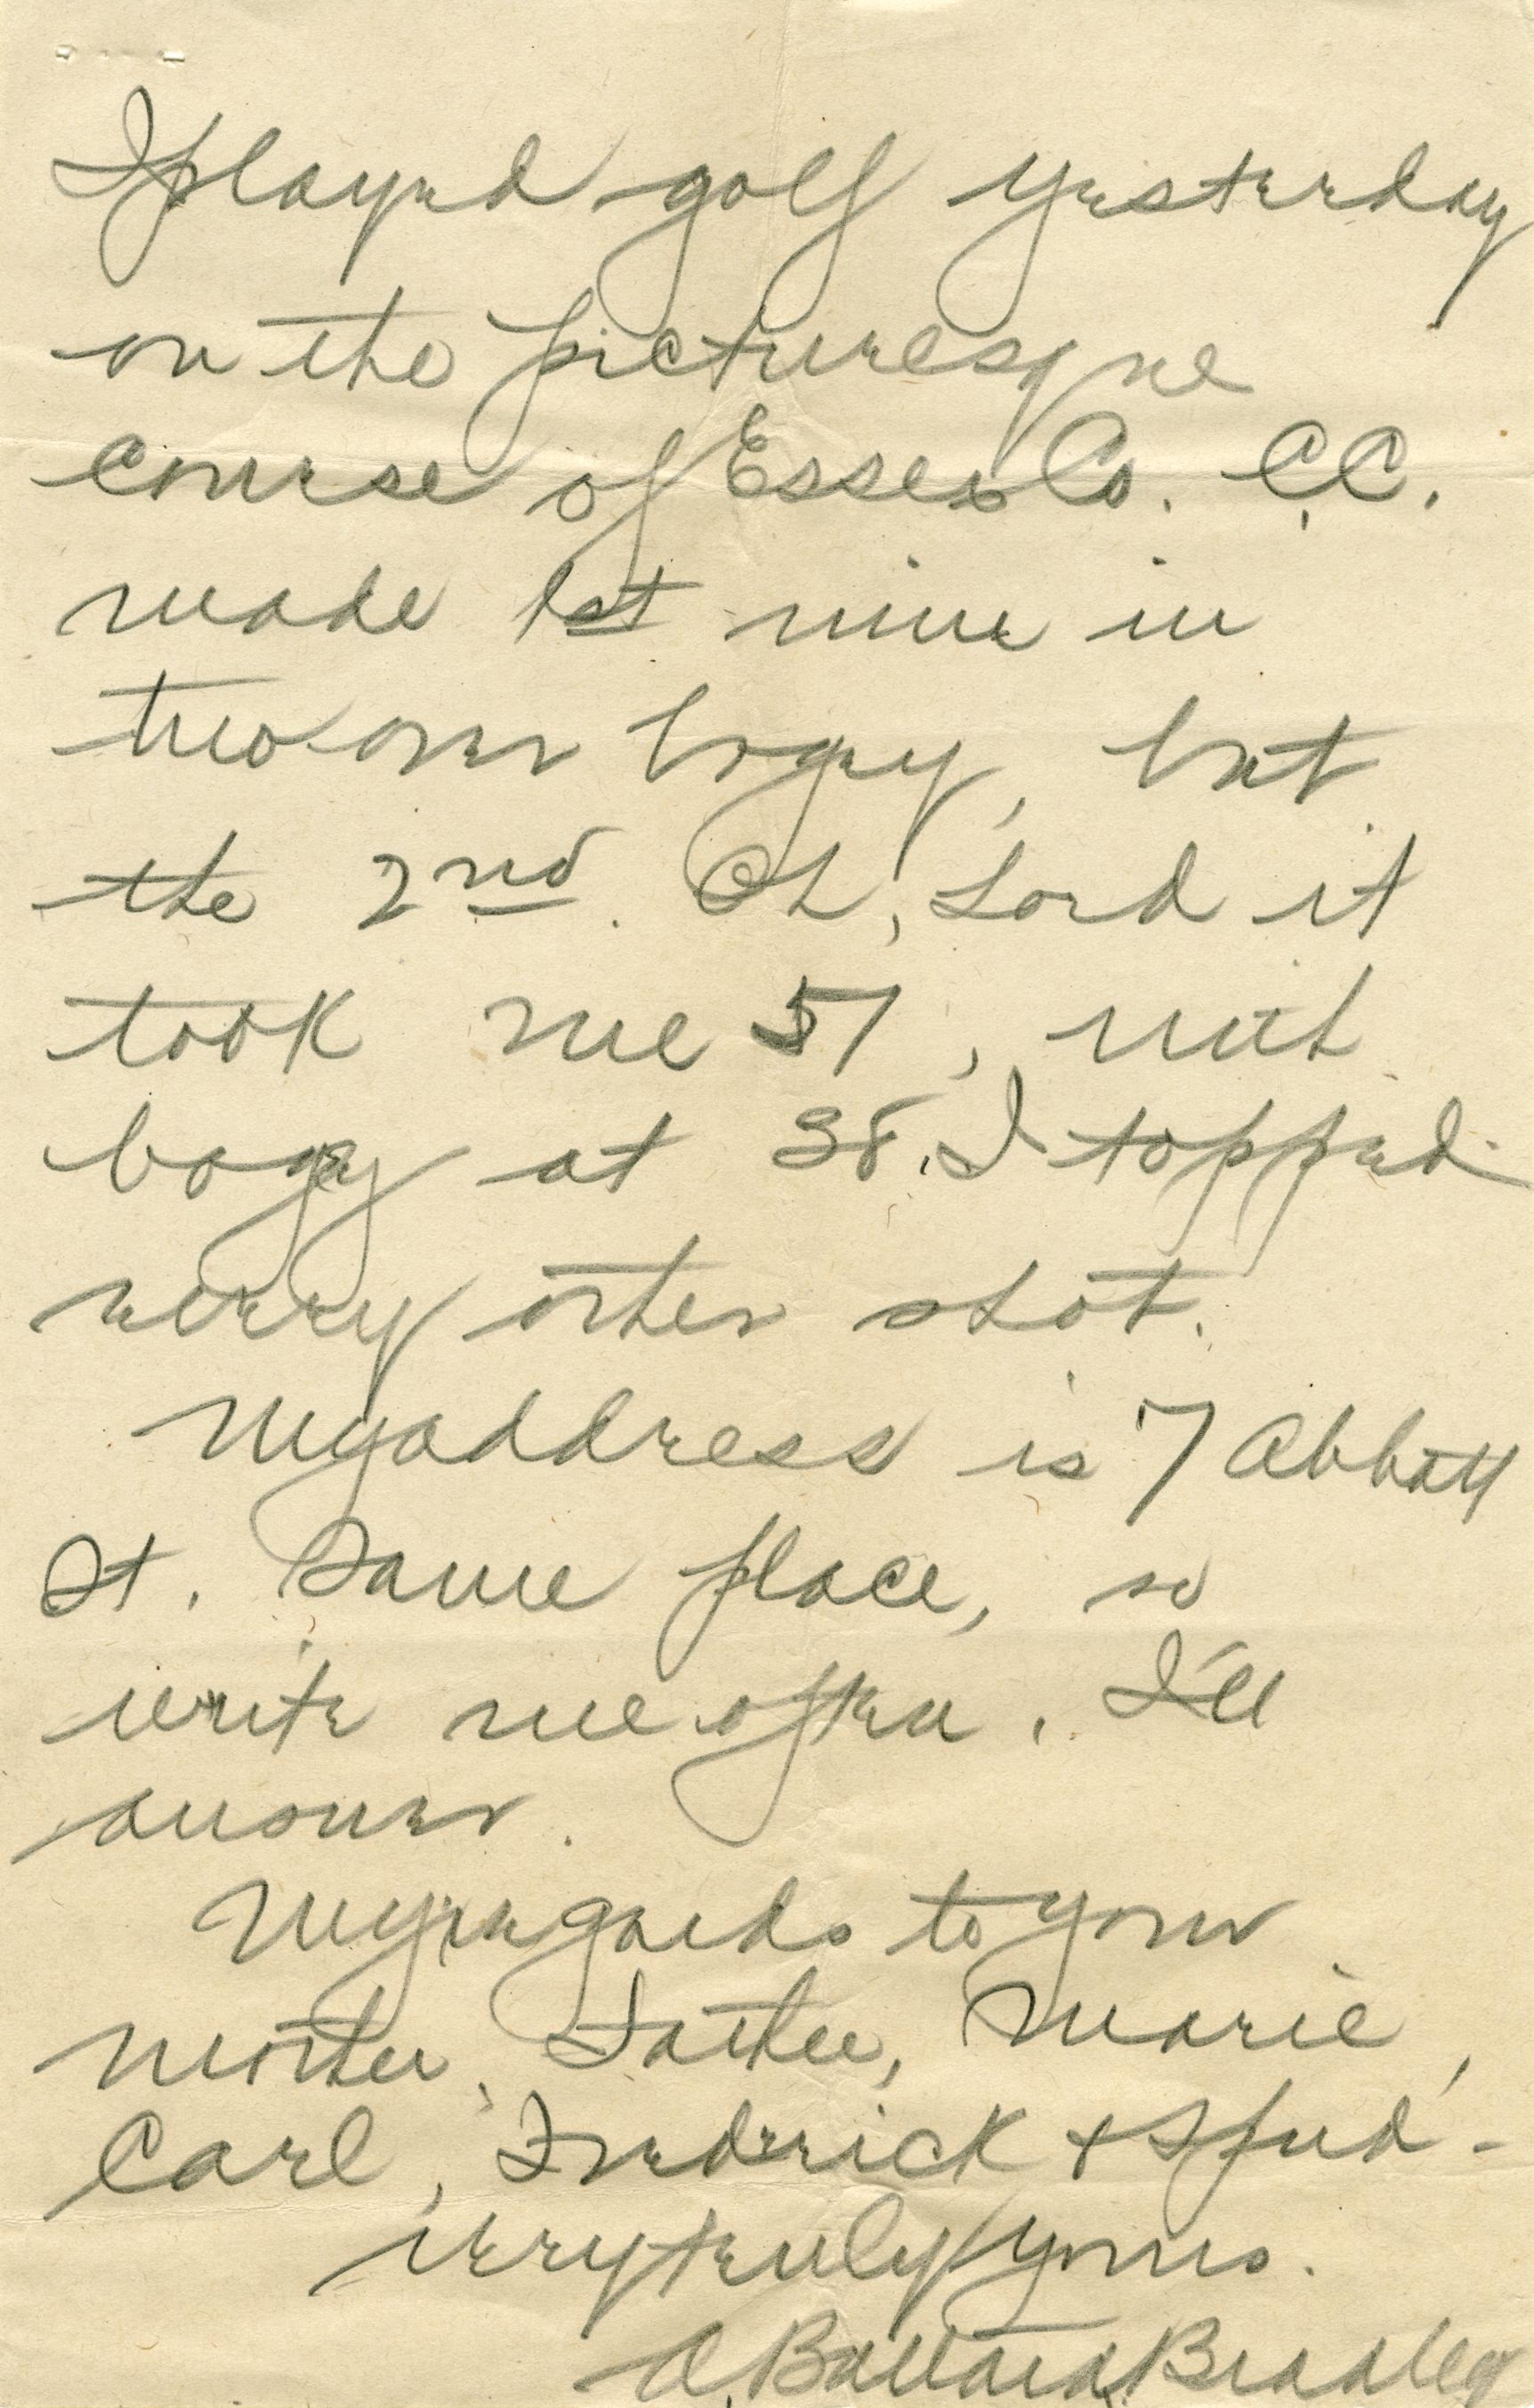 I played golf yesterday
on the picturesque
course of Essex Co. C.C.
made 1st nine in
two over bogey, but
the 2nd. Oh, Lord it
took me 57, with
bogey at 38. I topped
every other shot.
My address is 7 Abbott
St. Same place, so
write me often. I'll
answer.
My regards to your
mother, Father, Marie,
Carl, Fredrick & Spud -
Very truly yours.
A. Ballard Bradley